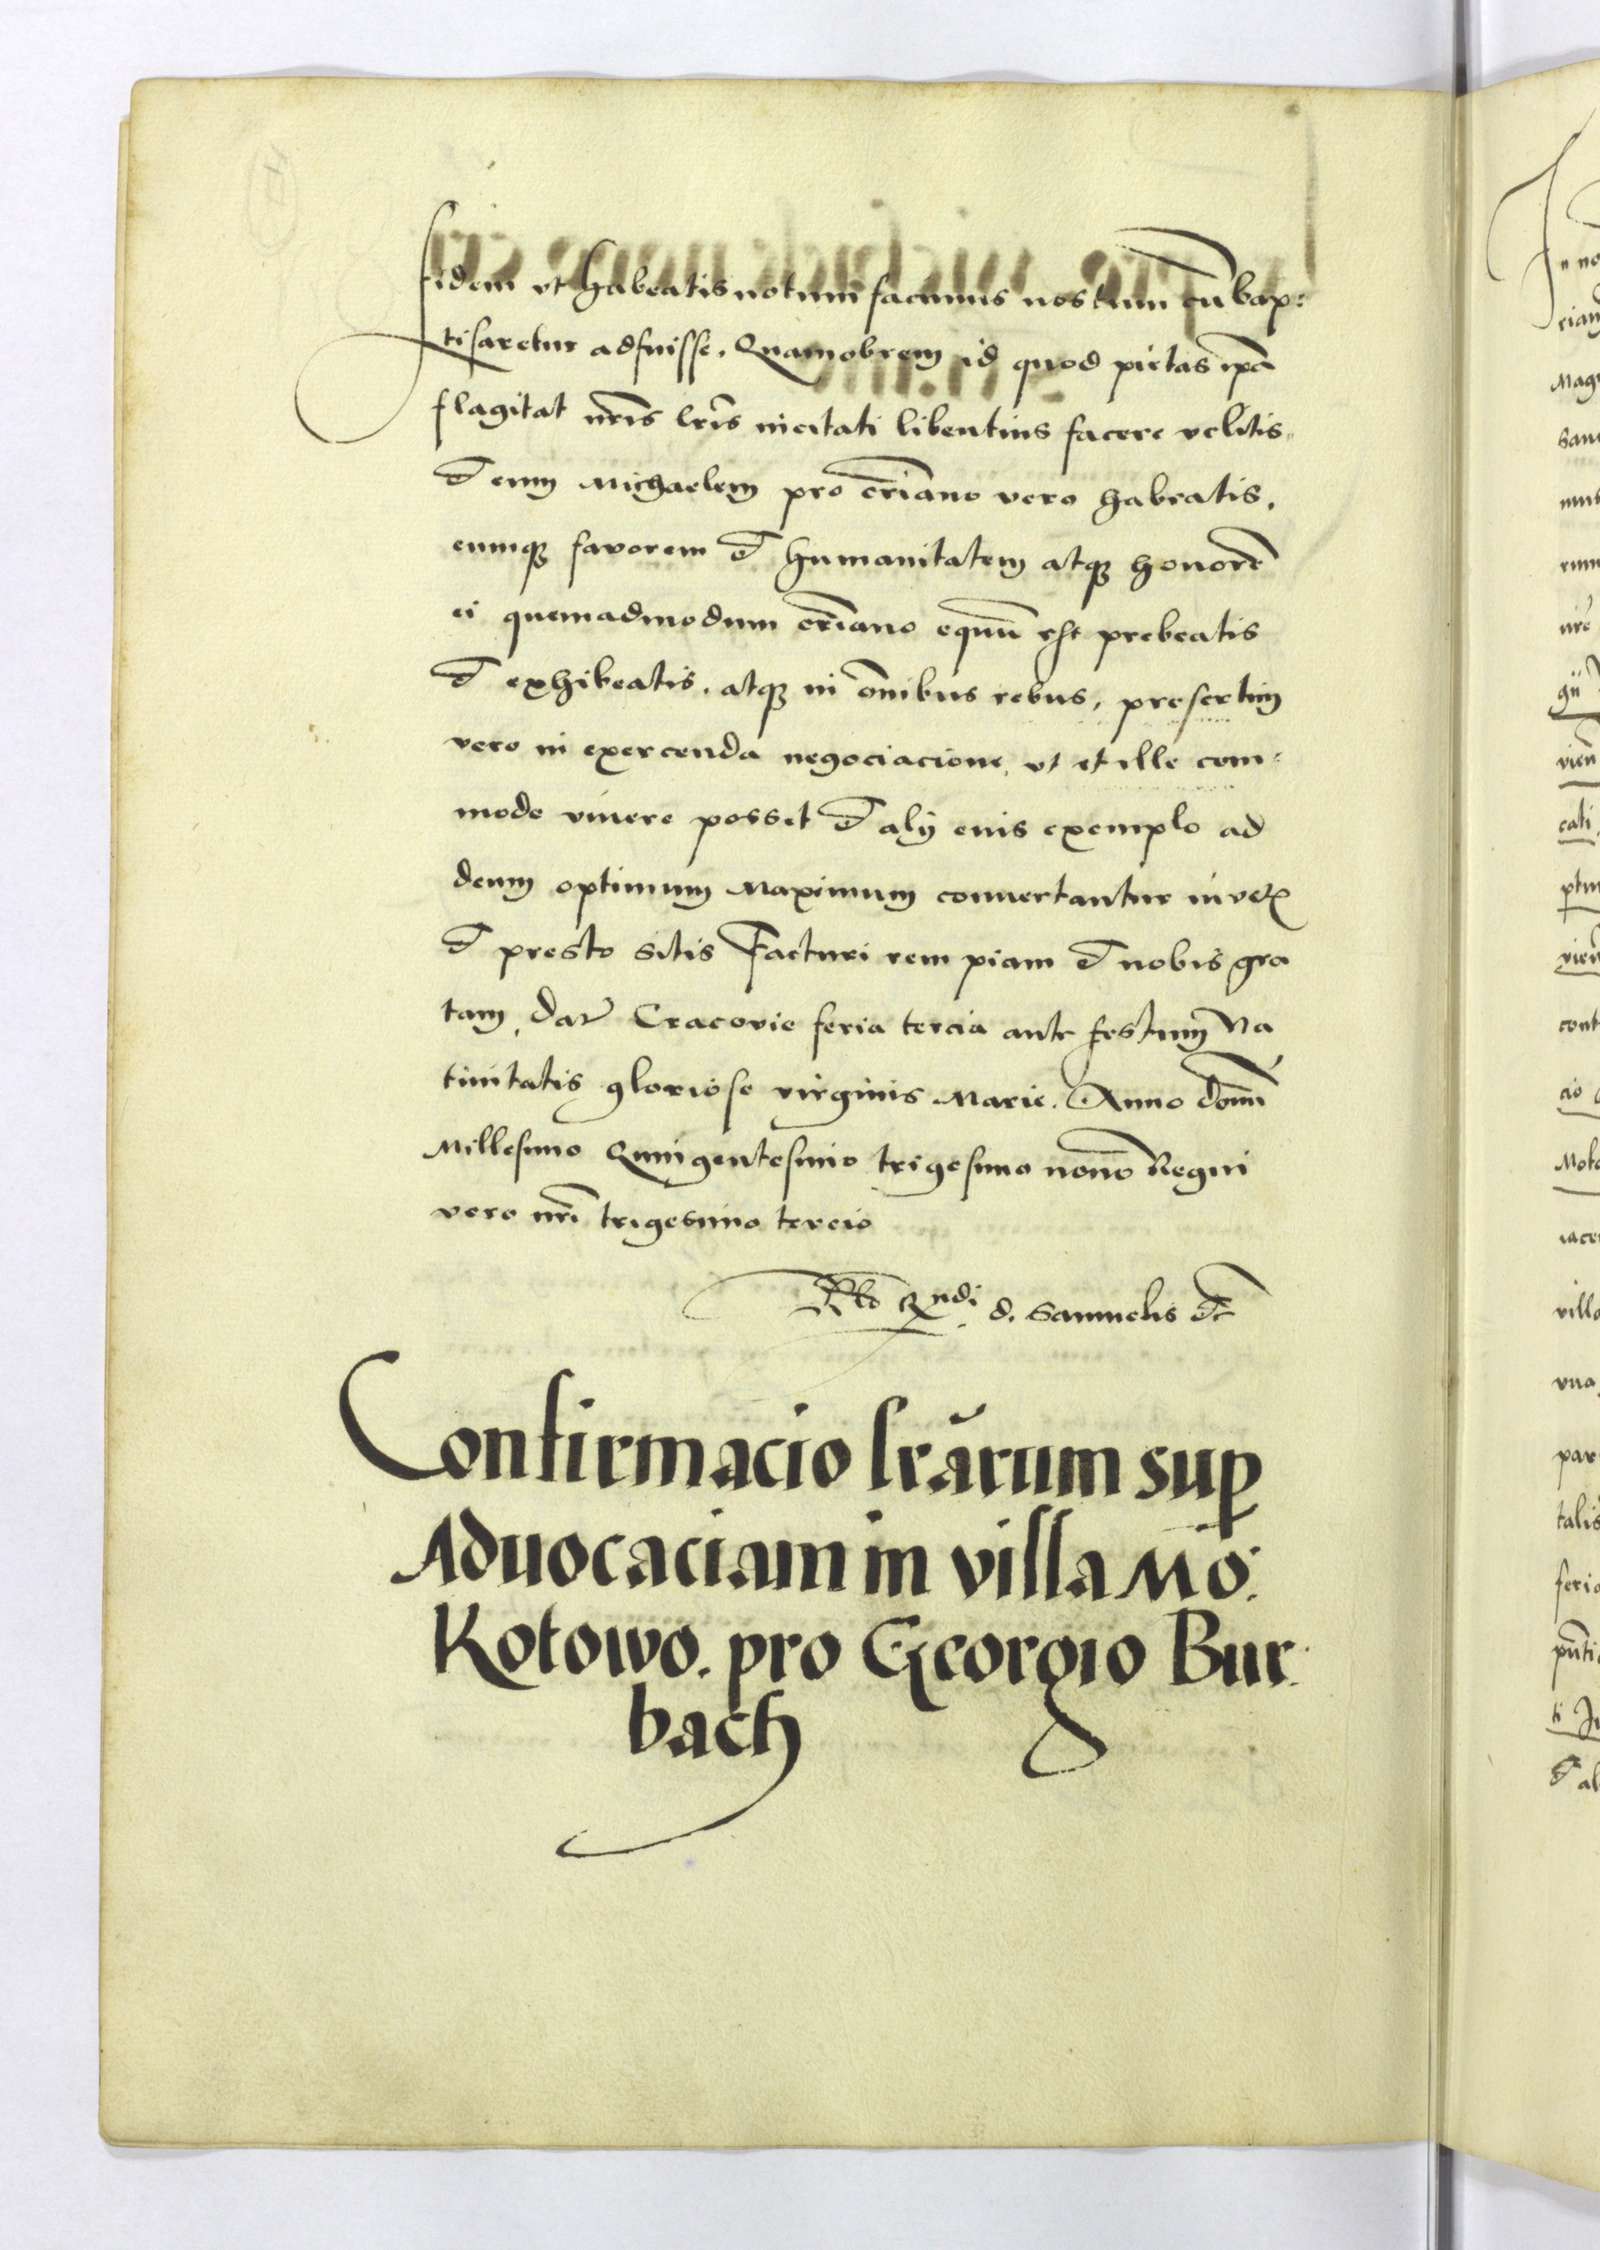 fidem vt habeatis notum facimus nostrum cũ bap:
tisaretur adfuisse. Quamobrem id quod pietas ipã
flagitat nr̃is lr̃is incitati libentius facere velitis
et eum Michaelem pro cr̃iano vero habeatis,
eumqꝫ favorem et humanitatem atqꝫ honorẽ
ei quemadmodum cr̃iano equũ est prebeatis
et exhibeatis. atqꝫ in om̃ibus rebus, presertim
vero in exercenda negociacione, vt et ille com:
mode viuere posset et alÿ eius exemplo ad
deum optimum Maximum conuertantur
et presto sitis Facturi rem piam et nobis gra
tam, dat̃ Cracovie feria tercia ante festum Na
tiuitatis gloriose virginis Marie. Anno domĩ
Millesimo Quingentesimo trigesimo nono Regni
vero nr̃i trigesimo tercio
Rlõ Rndi d. Samuelis etc̃
Confirmacio lr̃arum sup
Aduocaciam in villa Mo:
Kotowo. pro Georgio Bur:
bach